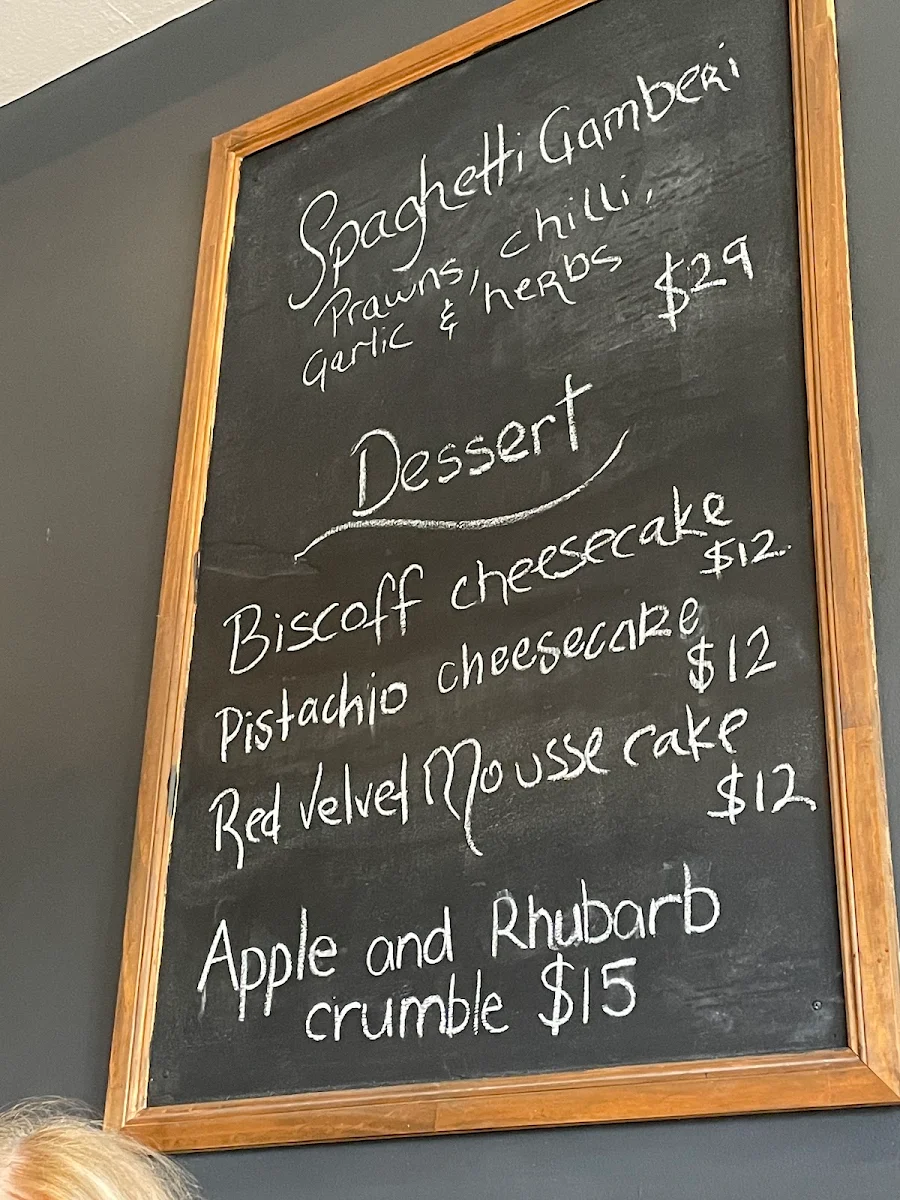 Spaghetti Gamberi
Prawns, chilli,
Garlic & herbs $29
Dessert
Biscoff cheesecake
$12.
Pistachio cheesecake
$12
Red Velvet Mousse cake
$12
Apple and Rhubarb
crumble $15